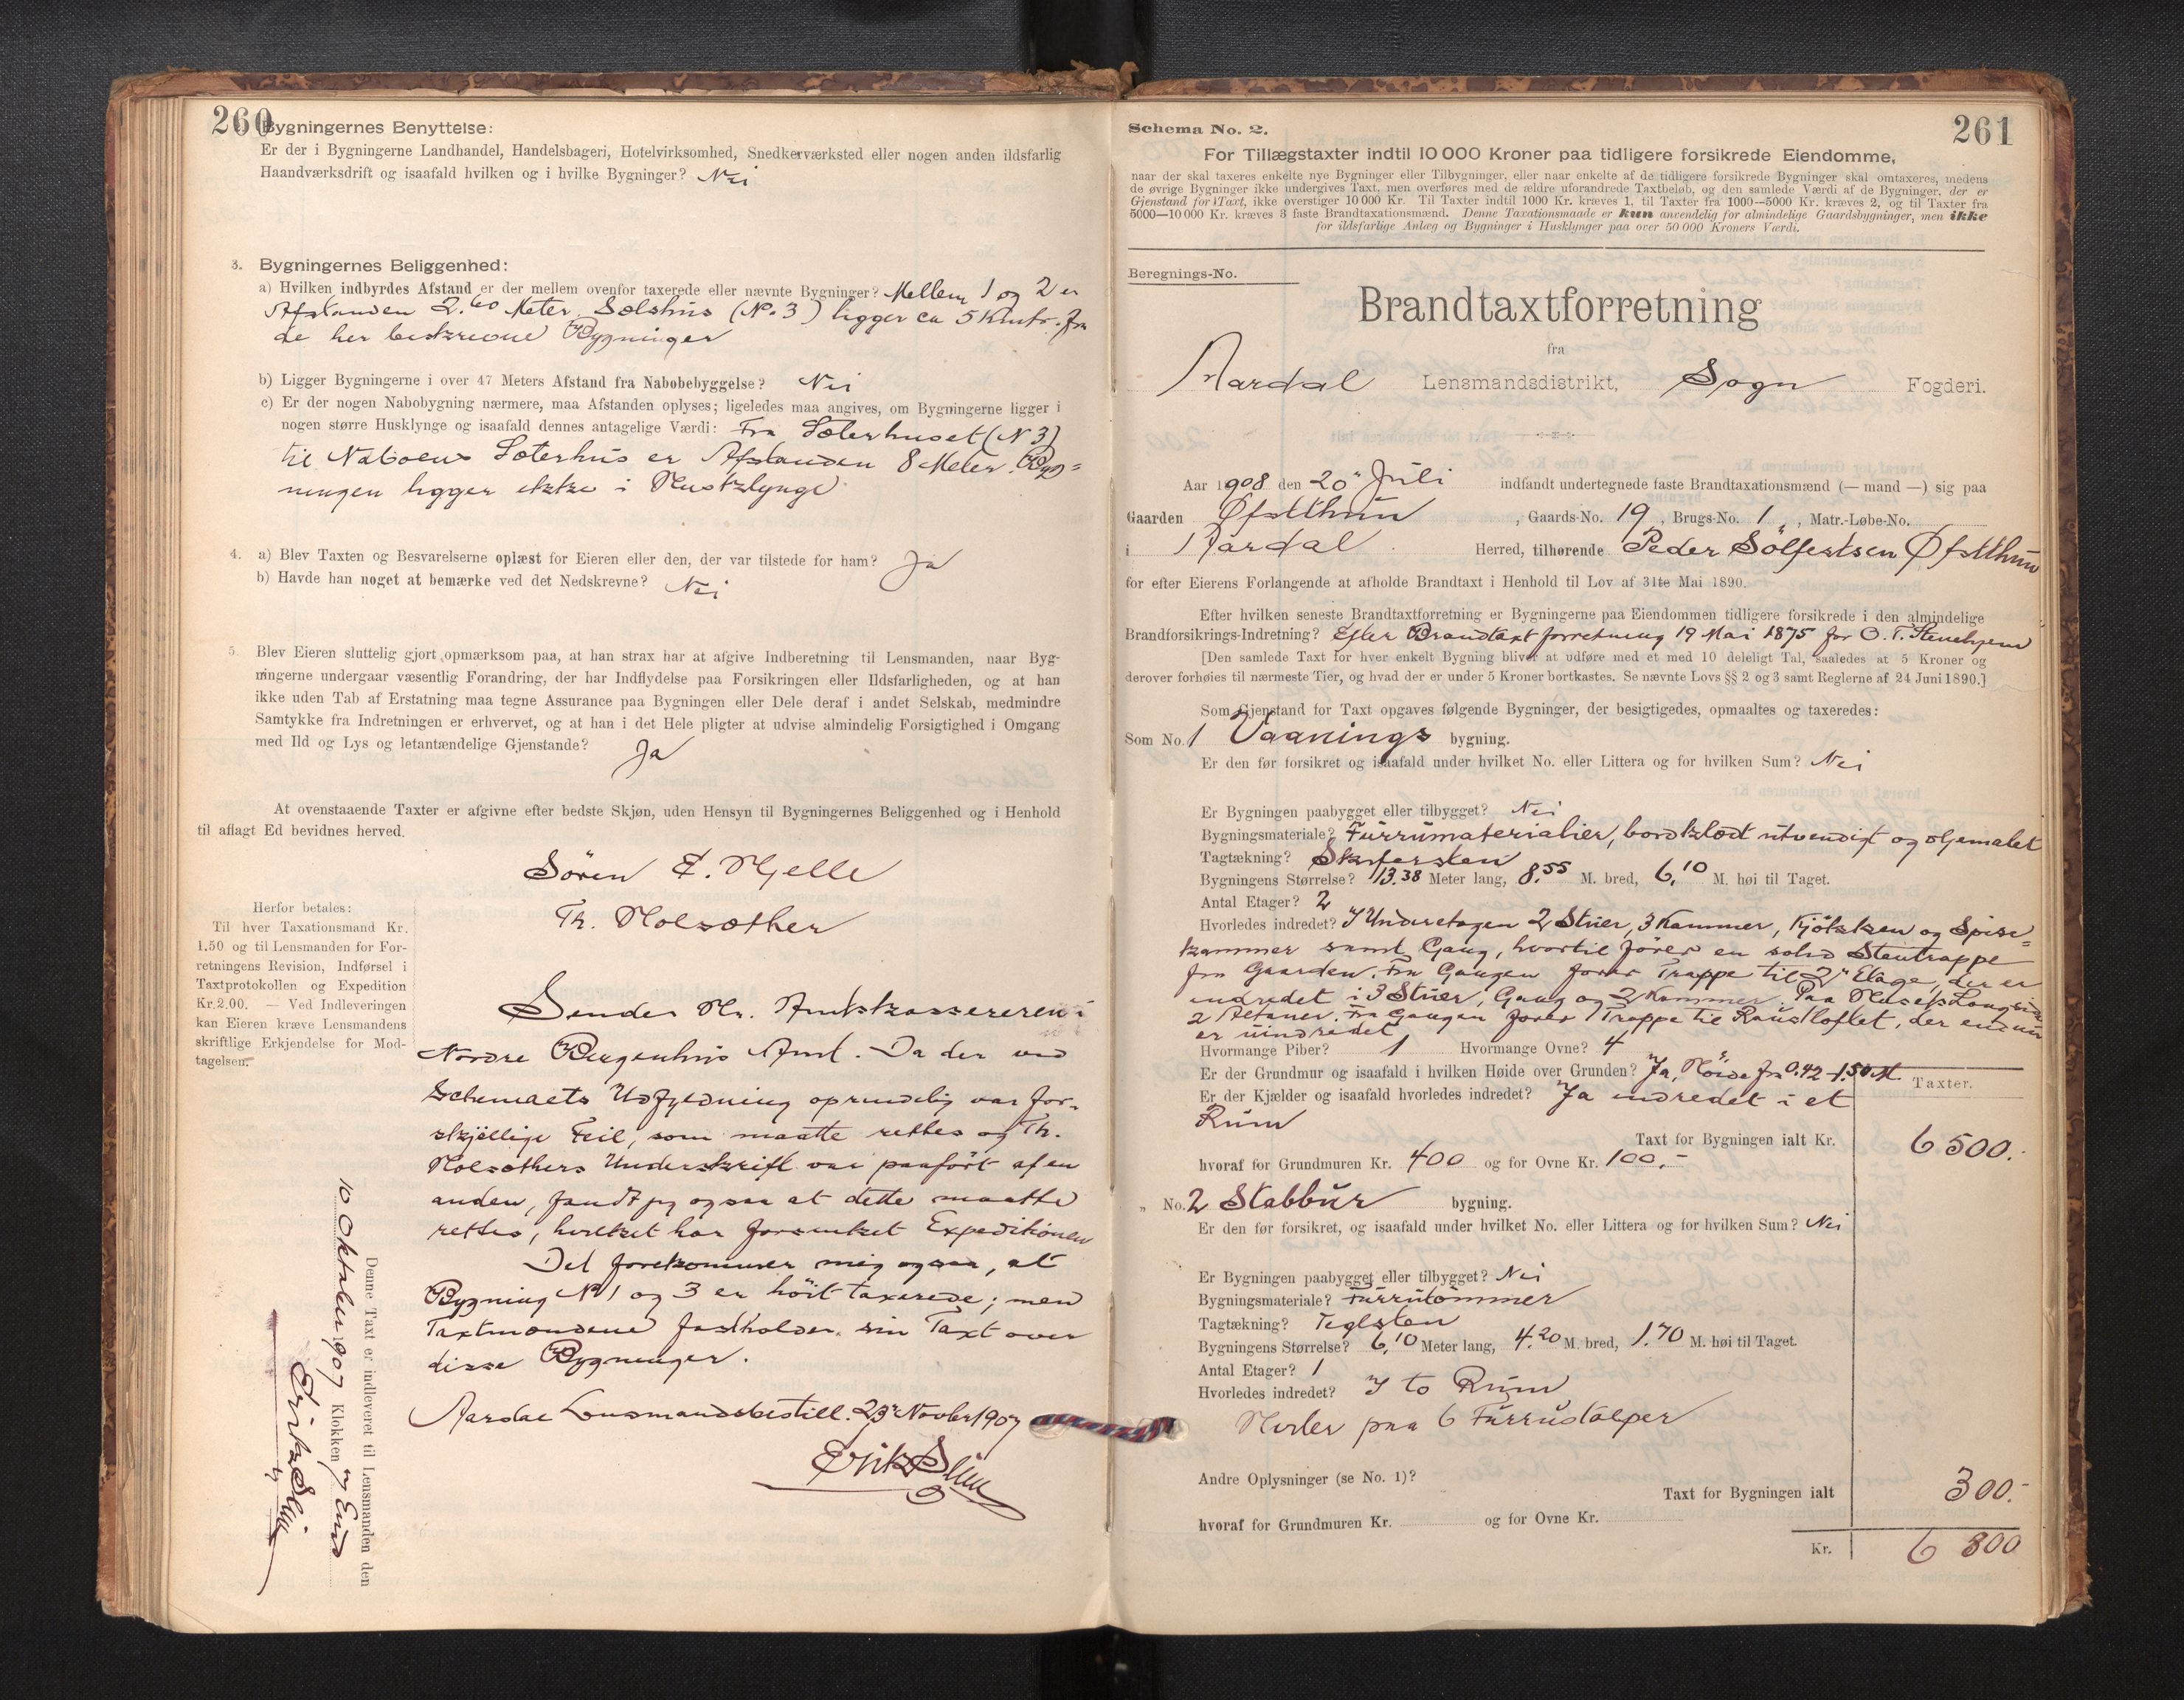 260
Bygningernes Benyttelse:
Er der i Bygningerne Landhandel, Handelsbageri, Hotelvirksomhed, Snedkerværksted eller nogen anden ildsfarlig
Haandværksdrift og isaafald hvilken og i hvilke Bygninger? Nei
3. Bygningernes Beliggenhed:
a) Hvilken indbyrdes Afstand er der mellem ovenfor taxerede eller nævnte Bygninger? Mellem 1 og 2 er
Afstanden 2.60 Meter. Sælshus (No 3) ligger ca 5 Kmtr. fra
de her beskrevne Bygninger
b) Ligger Bygningerne i over 47 Meters Afstand fra Nabobebyggelse? Nei
c) Er der nogen Nabobygning nærmere, maa Afstanden oplyses; ligeledes maa angives, om Bygningerne ligger i
nogen større Husklynge og isaafald dennes antagelige Værdi: Fra Sæterhuset (N 3)
til Naboens Sæterhus er Afstanden 8 Meter. Byg=
ningen ligger ikke i Husklynge
4. a) Blev Taxten og Besvarelserne oplæst for Eieren eller den, der var tilstede for ham? Ja
b) Havde han noget at bemærke ved det Nedskrevne? Nei
5. Blev Eieren sluttelig gjort opmærksom paa, at han strax har at afgive Indberetning til Lensmanden, naar Byg-
ningerne undergaar væsentlig Forandring, der har Indflydelse paa Forsikringen eller Ildsfarligheden, og at han
ikke uden Tab af Erstatning maa tegne Assurance paa Bygningen eller Dele deraf i andet Selskab, medmindre
Samtykke fra Indretningen er erhvervet, og at han i det Hele pligter at udvise almindelig Forsigtighed i Omgang
med Ild og Lys og letantændelige Gjenstande? Ja
At ovenstaaende Taxter er afgivne efter bedste Skjøn, uden Hensyn til Bygningernes Beliggenhed og i Henhold
til aflagt Ed bevidnes herved.
Sören E. Hjelle
Th. Holsæther
Herfor betales:
Til hver Taxationsmand Kr.
1.50 og til Lensmanden for For-
retningens Revision, Indførsel i
Taxtprotokollen og Expedition
Kr. 2.00. — Ved Indleveringen
kan Eieren kræve Lensmandens
skriftlige Erkjendelse for Mod-
tagelsen.
Sendes Hr. Amtskassereren i
Nordre Bergenhus Amt. Da der ved
Schemaets Udfyldning oprindelig var for-
skjellige Feil, som maatte rettes og Th.
Holsæthers Underskrift var paaført af en
anden, fandt jeg ogsaa at dette maatte
rettes, hvilket har forsinket Expeditionen
Det forekommer mig ogsaa, at
Bygning No 1 og 3 er höit taxerede; men
Taxtmændene fastholder sin Taxt over
disse Bygninger.
Aardal Lensmandsbestill. 23 Novbr 1907
Denne Taxt er indleveret til Lensmanden den
10 Oktober 1907 Klokken 7 Em
261
Schema No. 2.
For Tillægstaxter indtil 10 000 Kroner paa tidligere forsikrede Eiendomme,
naar der skal taxeres enkelte nye Bygninger eller Tilbygninger, eller naar enkelte af de tidligere forsikrede Bygninger skal omtaxeres, medens
de øvrige Bygninger ikke undergives Taxt, men overføres med de ældre uforandrede Taxtbeløb, og den samlede Værdi af de Bygninger, der er
Gjenstand for Taxt, ikke overstiger 10 000 Kr. Til Taxter indtil 1000 Kr. kræves 1, til Taxter fra 1000—5000 Kr. kræves 2, og til Taxter fra
5000—10 000 Kr. kræves 3 faste Brandtaxationsmænd. Denne Taxationsmaade er kun anvendelig for almindelige Gaardsbygninger, men ikke
for ildsfarlige Anlæg og Bygninger i Husklynger paa over 50 000 Kroners Værdi.
Beregnings-No.
Brandtaxtforretning
fra
Aardal Lensmandsdistrikt, Sogn Fogderi.
Aar 1908 den 20 Juli indfandt undertegnede faste Brandtaxationsmænd (— mand —) sig paa
Gaarden Øfstthun, Gaards-No. 19, Brugs-No. 1, Matr.-Løbe-No.
i Aardal Herred, tilhørende Peder Sølfestsen Øfstthun
for efter Eierens Forlangende at afholde Brandtaxt i Henhold til Lov af 31te Mai 1890.
Efter hvilken seneste Brandtaxtforretning er Bygningerne paa Eiendommen tidligere forsikrede i den almindelige
Brandforsikrings-Indretning? Efter Brandtaxtforretning 19 Mai 1875 for O. T. Stenehjem
[Den samlede Taxt for hver enkelt Bygning bliver at udføre med et med 10 deleligt Tal, saaledes at 5 Kroner og
derover forhøies til nærmeste Tier, og hvad der er under 5 Kroner bortkastes. Se nævnte Lovs §§ 2 og 3 samt Reglerne af 24 Juni 1890.]
Som Gjenstand for Taxt opgaves følgende Bygninger, der besigtigedes, opmaaltes og taxeredes:
Som No. 1 Vaanings bygning.
Er den før forsikret og isaafald under hvilket No. eller Littera og for hvilken Sum? Nei
Er Bygningen paabygget eller tilbygget? Nei
Bygningsmateriale? Furrumaterialier, bordklædt udvendigt og oljemalet
Tagtækning? Skifersten
Bygningens Størrelse? 13.38 Meter lang, 8.55 M. bred, 6,10 M. høi til Taget.
Antal Etager? 2
Hvorledes indredet? I Underetagen 2 Stuer, 3 Kammer, Kjökken og Spise=
kammer samt Gang, hvortil förer en solid Stentrappe
fra Gaarden. Fra Gangen förer Trappe til 2 Etage, der er
indredet i 3 Stuer, Gang og 2 Kammer. Paa Husets Langside
2 Altaner. Fra Gangen förer Trappe til Röstloftet, der endnu
er uindredet
Hvormange Piber? 1 Hvormange Ovne? 4
Er der Grundmur og isaafald i hvilken Høide over Grunden? Ja, Höide fra 0.42 - 1.50 M.
Er der Kjælder og isaafald hvorledes indredet? Ja indredet i et
Rum
Taxter.
Taxt for Bygningen ialt Kr. 6 500.
hvoraf for Grundmuren Kr. 400 og for Ovne Kr. 100.-
„ No. 2 Stabbur bygning.
Er den før forsikret, og isaafald under hvilket No. eller Littera og for hvilken Sum? Nei
Er Bygningen paabygget eller tilbygget? Nei
Bygningsmateriale? Furrutömmer
Tagtækning? Teglsten
Bygningens Størrelse? 6,10 Meter lang, 4.20 M. bred, 1.70 M. høi til Taget.
Antal Etager? 1
Hvorledes indredet? I to Rum
Hviler paa 6 Furrustolper
Andre Oplysninger (se No. 1)?
Taxt for Bygningen ialt 300.-
hvoraf for Grundmuren Kr. og for Ovne Kr.
Kr. 6 800